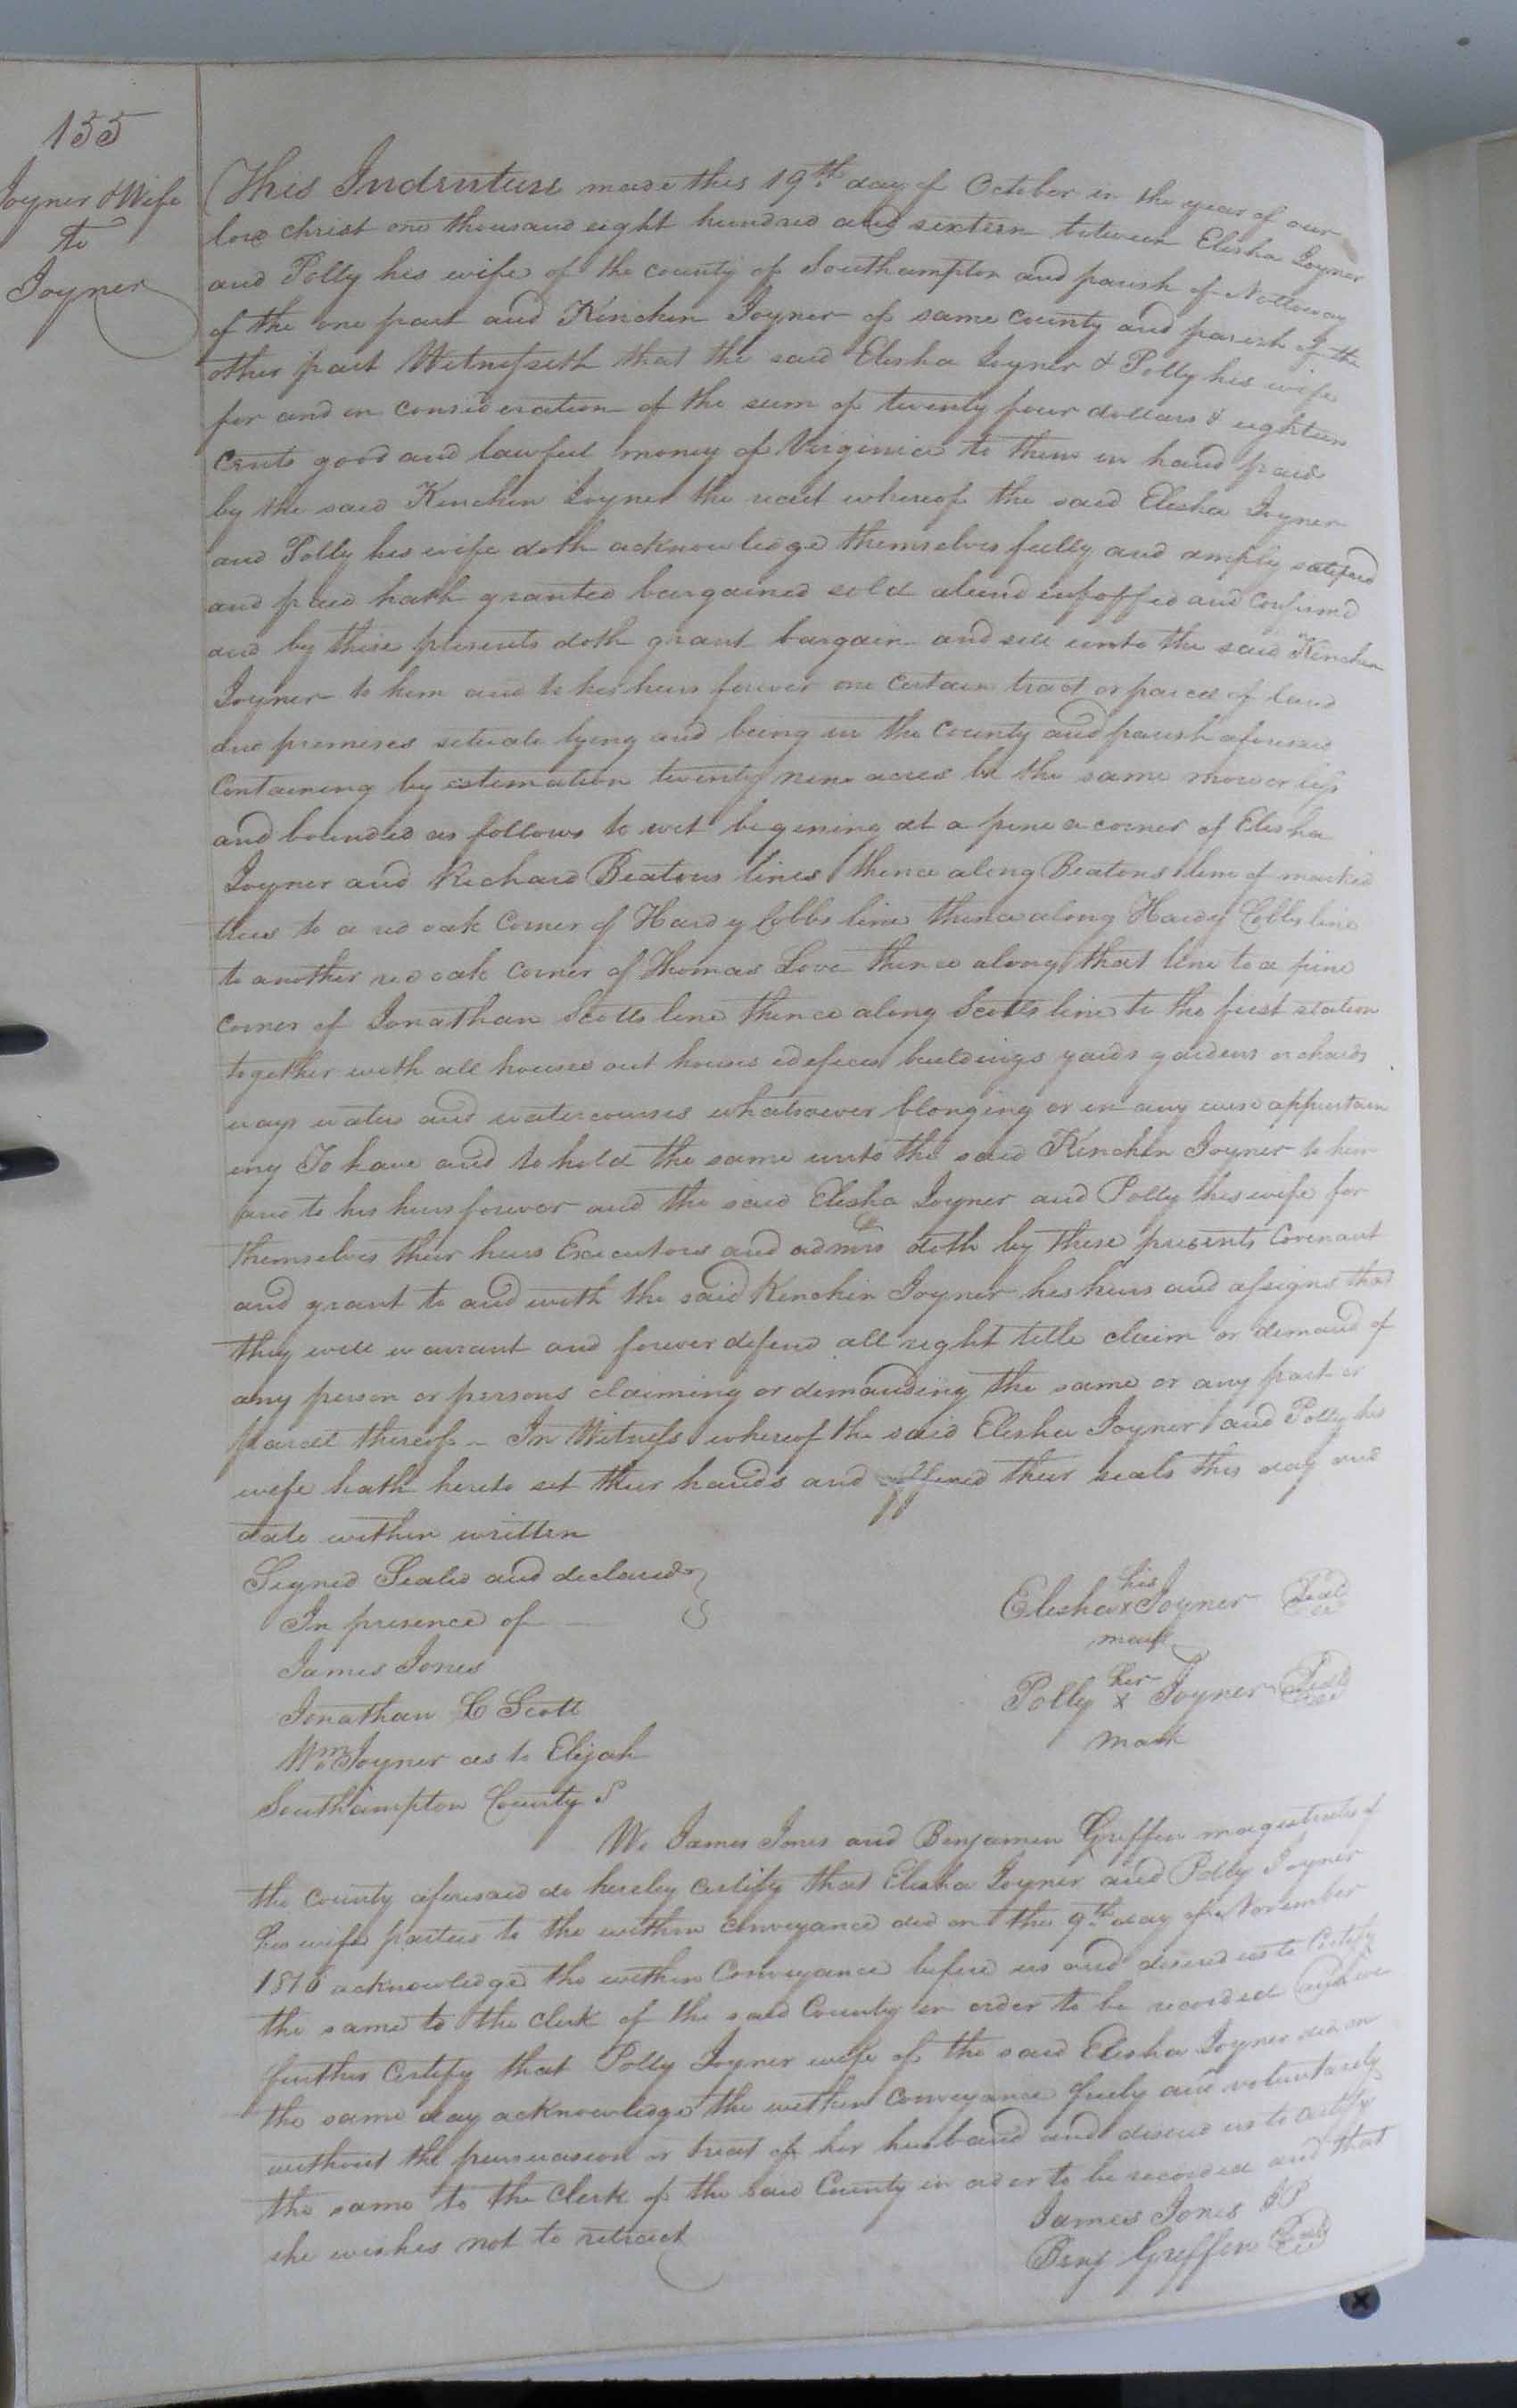 155
Joyner & Wife
to
Joyner
This Indenture made this 19th day of October in the year of our
lord christ one thousand eight hundred and sixteen between Elisha Joyner
and Polly his wife of the county of Southampton and parish of Nottoway
of the one part and Kinchen Joyner of same county and parish of the
other part Witnesseth that the said Elisha Joyner & Polly his wife
for and in consideration of the sum of twenty four dollars & eighteen
cents good and lawful money of Virginia to them in hand paid
by the said Kinchen Joyner the reciet whereof the said Elisha Joyner
and Polly his wife doth acknowledge themselves fully and amply satisfied
and paid hath granted bargained sold aliend infoffed and confirmed
and by these presents doth grant bargain and sell unto the said Kinchen
Joyner to him and to his heirs forever one certain tract or parcel of land
and premises situate lying and being in the county and parish aforesaid
Containing by estimation twenty nine acres be the same more or less
and bounded as follows to wit begening at a pine a corner of Elisha
Joyner and Richard Beatons lines thence along Beatons line of marked
trees to a red oak corner of Hardy Cobbs line thence along Hardy Cobbs line
to another red oak corner of Thomas Love thence along that line to a pine
corner of Jonathan Scotts line thence along Scotts line to the first station
together with all houses out houses edefices buildings yards gardens orchards
ways waters and watercourses whatsoever blonging or in any wise appurtain
ing To have and to hold the same unto the said Kinchen Joyner to him
and to his heirs forever and the said Elisha Joyner and Polly his wife for
themselves their heirs Executors and admrs doth by these presents Covenant
and grant to and with the said Kinchen Joyner his heirs and assigns that
they will warrant and forever defend all right title claim or demand of
any person or persons claiming or demanding the same or any part or
parcel thereof - In Witness whereof the said Elisha Joyner and Polly his
wife hath hereto set their hands and affixed their seals this day and
date within written
Signed Sealed and declared
In presence of
James Jones
Jonathan C Scott
Wm Joyner as to Elijah
his
Elisha x Joyner Seal
mark
her
Polly x Joyner Seal
mark
Southampton County S
We James Jones and Benjamin Griffin magistrates of
the county aforesaid do hereby certify that Elisha Joyner and Polly Joyner
his wife parties to the within conveyance did on the 9th day of November
1816 acknowledge the within Conveyance before us and desired us to Certify
the same to the clerk of the said County in order to be recorded and we
further Certify that Polly Joyner wife of the said Elisha Joyner did on
the same day acknowledge the within conveyance freely and voluntarily
without the persuasion or treat of her husband and desired us to certify
the same to the Clerk of the said County in order to be recorded and that
she wishes not to retract
James Jones JP
Benj Griffen Seal